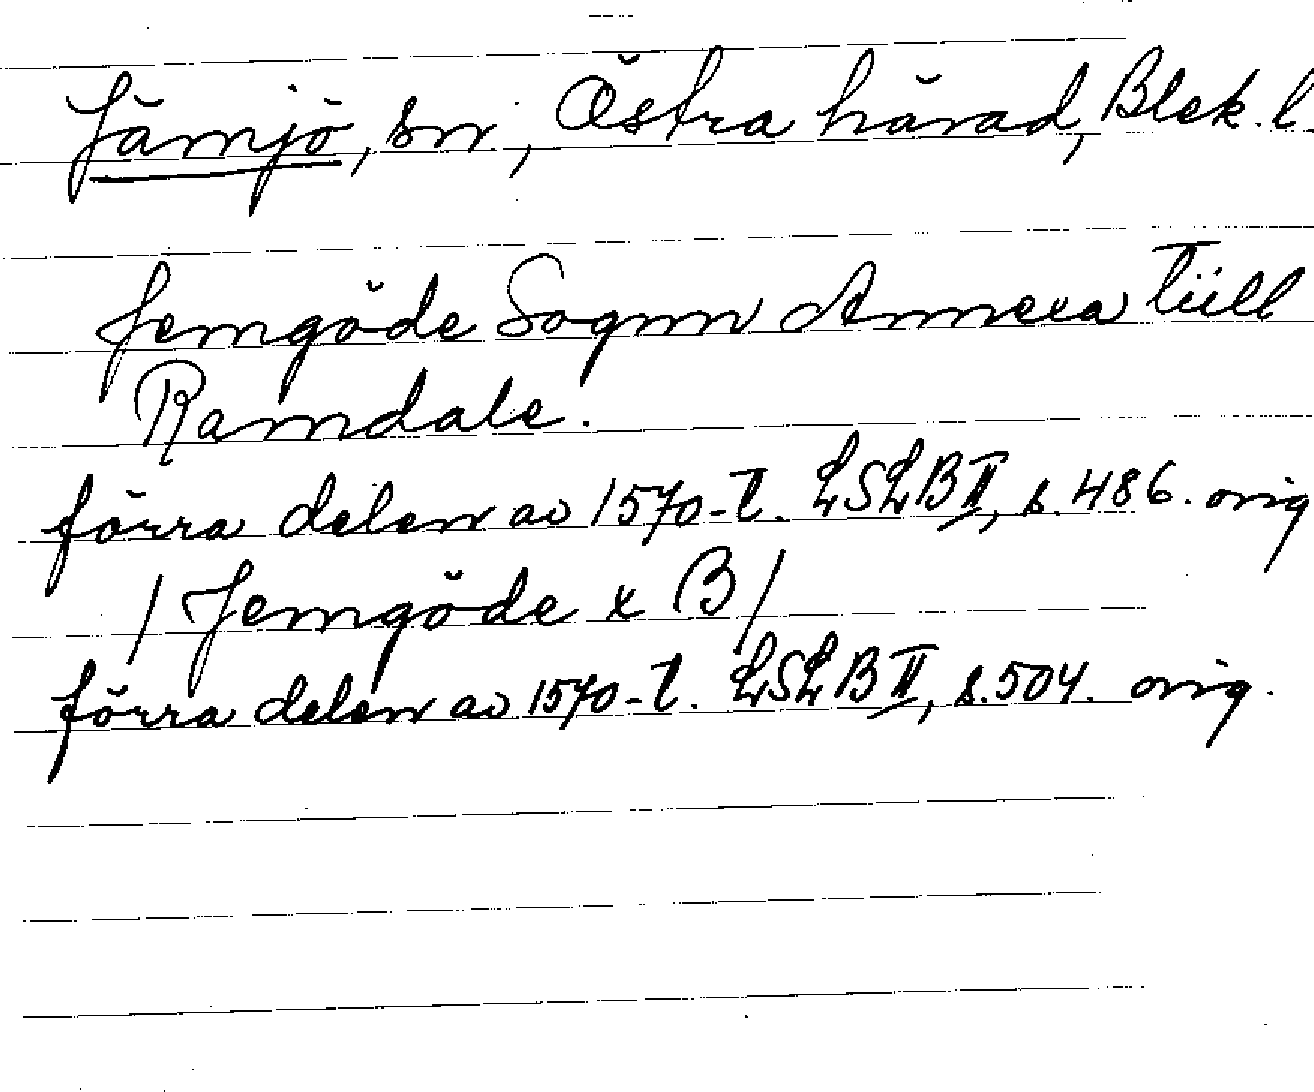 Jämjö, sn, Östra härad, Blek. l.
Jemgöde Sognn Annexa Tiill
Ramdale.
förra delen av 1570-t. LSLB II, s. 486. orig
/ Jemgöde x B /
förra delen av 1570-t. LSLB II, s. 504. orig.